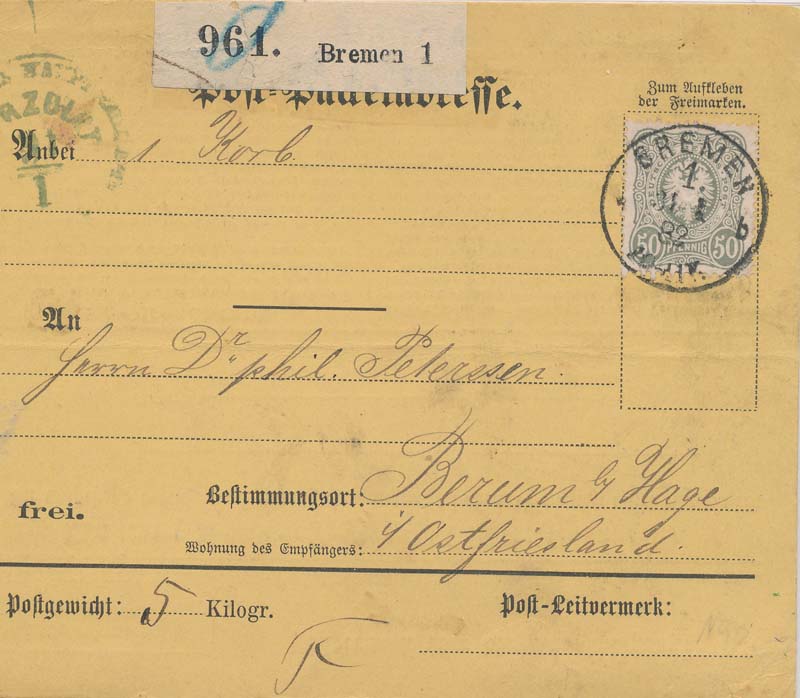 961. Bremen 1
Post-Packetadresse.
Zum Aufkleben
der Freimarken.
Anbei 1 Korb
BREMEN
1.
82
50 PFENNIG 50
An
Herrn Dr. phil. Peterssen.
Bestimmungsort: Berum b/ Hage
frei.
Wohnung des Empfängers: i/ Ostfriesland.
Postgewicht: 5 Kilogr.
Post-Leitvermerk: